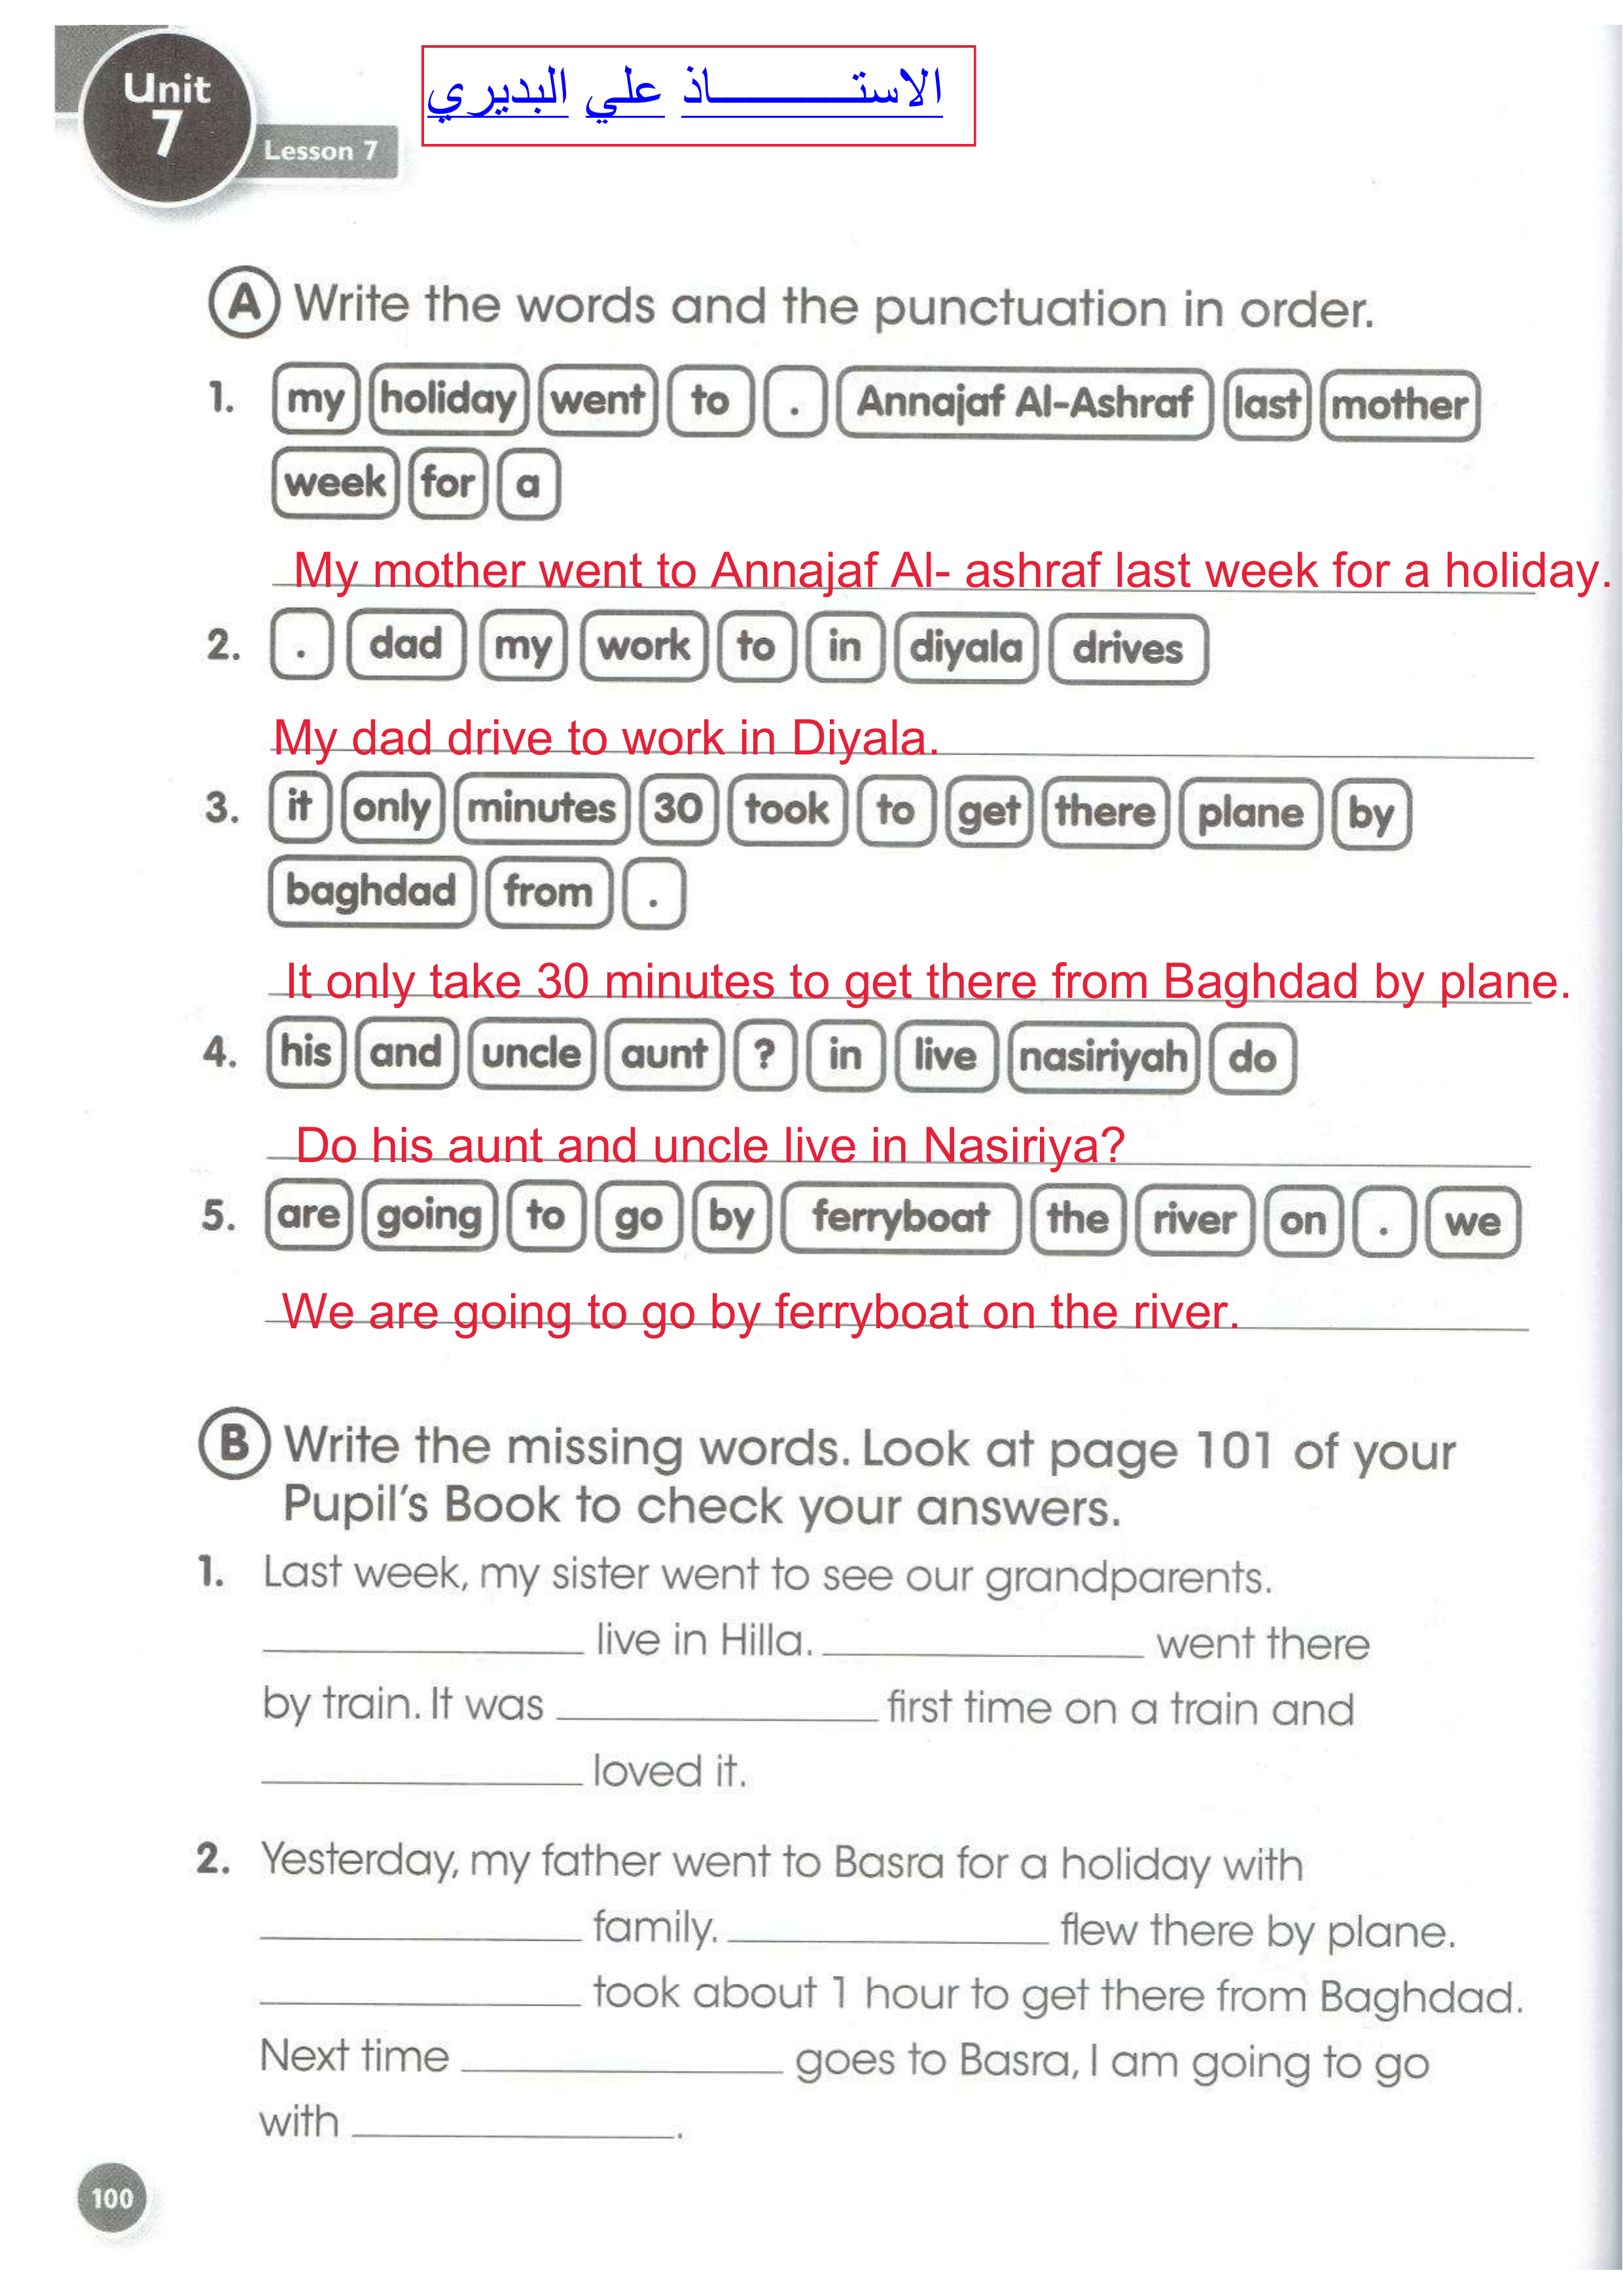 Unit
7
Lesson 7
الاستــــــــاذ علي البديري
A Write the words and the punctuation in order.
1. my holiday went to . Annajaf Al-Ashraf last mother
week for a
My mother went to Annajaf Al- ashraf last week for a holiday.
2. . dad my work to in diyala drives
My dad drive to work in Diyala.
3. it only minutes 30 took to get there plane by
baghdad from .
It only take 30 minutes to get there from Baghdad by plane.
4. his and uncle aunt ? in live nasiriyah do
Do his aunt and uncle live in Nasiriya?
5. are going to go by ferryboat the river on . we
We are going to go by ferryboat on the river.
B Write the missing words. Look at page 101 of your
Pupil's Book to check your answers.
1. Last week, my sister went to see our grandparents.
____________ live in Hilla. ____________ went there
by train. It was ____________ first time on a train and
____________ loved it.
2. Yesterday, my father went to Basra for a holiday with
____________ family. ____________ flew there by plane.
____________ took about 1 hour to get there from Baghdad.
Next time ____________ goes to Basra, I am going to go
with ____________.
100